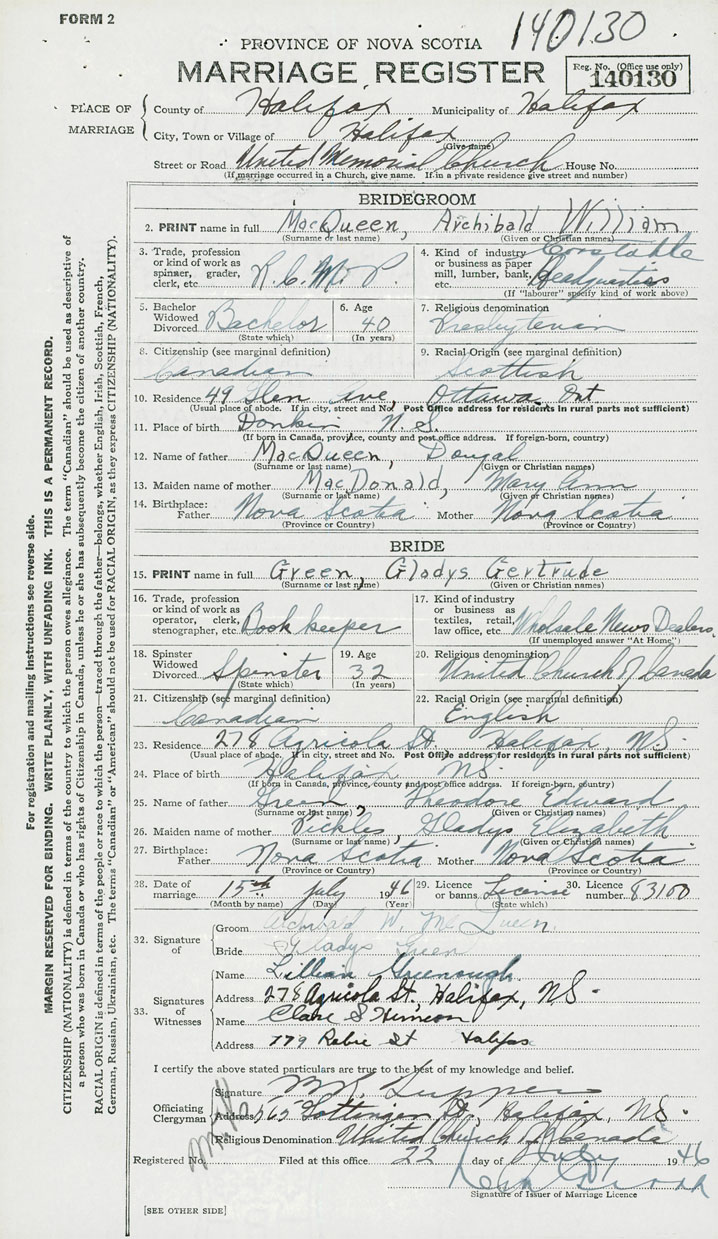 FORM 2
140130
PROVINCE OF NOVA SCOTIA
MARRIAGE REGISTER
Reg. No. (Office use only)
140130
PLACE OF MARRIAGE
County of Halifax Municipality of Halifax
City, Town or Village of Halifax
(Give name)
Street or Road United Memorial Church House No.
(If marriage occurred in a Church, give name. If in a private residence give street and number)
BRIDEGROOM
2. PRINT name in full MacQueen, Archibald William
(Surname or last name) (Given or Christian names)
3. Trade, profession or kind of work as spinner, grader, clerk, etc. R.C.M.P.
4. Kind of industry or business as paper mill, lumber, bank, etc. Constable Headquarters
(If "labourer" specify kind of work above)
5. Bachelor Widowed Divorced Bachelor
(State which)
6. Age 40
(In years)
7. Religious denomination
Presbyterian
8. Citizenship (see marginal definition)
Canadian
9. Racial Origin (see marginal definition)
Scottish
10. Residence 49 Glen Ave, Ottawa, Ont
(Usual place of abode. If in city, street and No. Post Office address for residents in rural parts not sufficient)
11. Place of birth Donkin N.S.
(If born in Canada, province, county and post office address. If foreign-born, country)
12. Name of father MacQueen, Dougal
(Surname or last name) (Given or Christian names)
13. Maiden name of mother MacDonald, Mary Ann
(Surname or last name) (Given or Christian names)
14. Birthplace: Father Nova Scotia Mother Nova Scotia
(Province or Country) (Province or Country)
BRIDE
15. PRINT name in full Green, Gladys Gertrude
(Surname or last name) (Given or Christian names)
16. Trade, profession or kind of work as operator, clerk, stenographer, etc. Book keeper
17. Kind of industry or business as textiles, retail, law office, etc. Wholesale News Dealers
(If unemployed answer "At Home")
18. Spinster Widowed Divorced Spinster
(State which)
19. Age 32
(In years)
20. Religious denomination
United Church of Canada
21. Citizenship (see marginal definition)
Canadian
22. Racial Origin (see marginal definition)
English
23. Residence 278 Agricola St. Halifax, NS.
(Usual place of abode. If in city, street and No. Post Office address for residents in rural parts not sufficient)
24. Place of birth Halifax NS.
(If born in Canada, province, county and post office address. If foreign-born, country)
25. Name of father Green, Theodore Edward
(Surname or last name) (Given or Christian names)
26. Maiden name of mother Pickles, Gladys Elizabeth
(Surname or last name) (Given or Christian names)
27. Birthplace: Father Nova Scotia Mother Nova Scotia
(Province or Country) (Province or Country)
28. Date of marriage 15th July 1946
(Month by name) (Day) (Year)
29. Licence or banns License
(State which)
30. Licence number 83100
32. Signature of
Groom Archibald W. McQueen
Bride Gladys Green
33. Signatures of Witnesses
Name Lillian Greenough
Address 278 Agricola St, Halifax, NS.
Name Clare S
Address 779 Robie St Halifax
I certify the above stated particulars are true to the best of my knowledge and belief.
Officiating Clergyman
Signature
Address 565 Gottingen St, Halifax, NS.
Religious Denomination United Church of Canada
Registered No. Filed at this office 22 day of July 1946
Signature of Issuer of Marriage Licence
[SEE OTHER SIDE]
For registration and mailing instructions see reverse side.
MARGIN RESERVED FOR BINDING. WRITE PLAINLY, WITH UNFADING INK. THIS IS A PERMANENT RECORD.
CITIZENSHIP (NATIONALITY) is defined in terms of the country to which the person owes allegiance. The term "Canadian" should be used as descriptive of
a person who was born in Canada or who has rights of Citizenship in Canada, unless he or she has subsequently become the citizen of another country.
RACIAL ORIGIN is defined in terms of the people or race to which the person—traced through the father—belongs, whether English, Irish, Scottish, French,
German, Russian, Ukrainian, etc. The terms "Canadian" or "American" should not be used for RACIAL ORIGIN, as they express CITIZENSHIP (NATIONALITY).